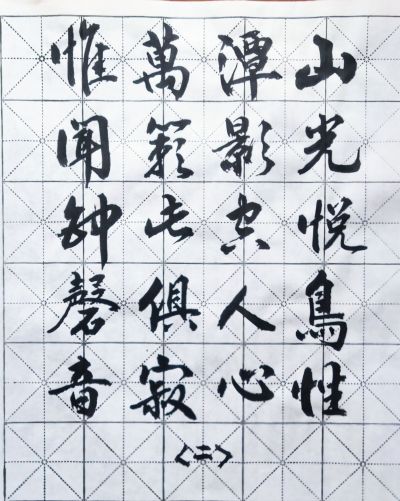 山光悦鳥性
潭影空人心
萬籟此俱寂
惟聞鈡磬音
<二>